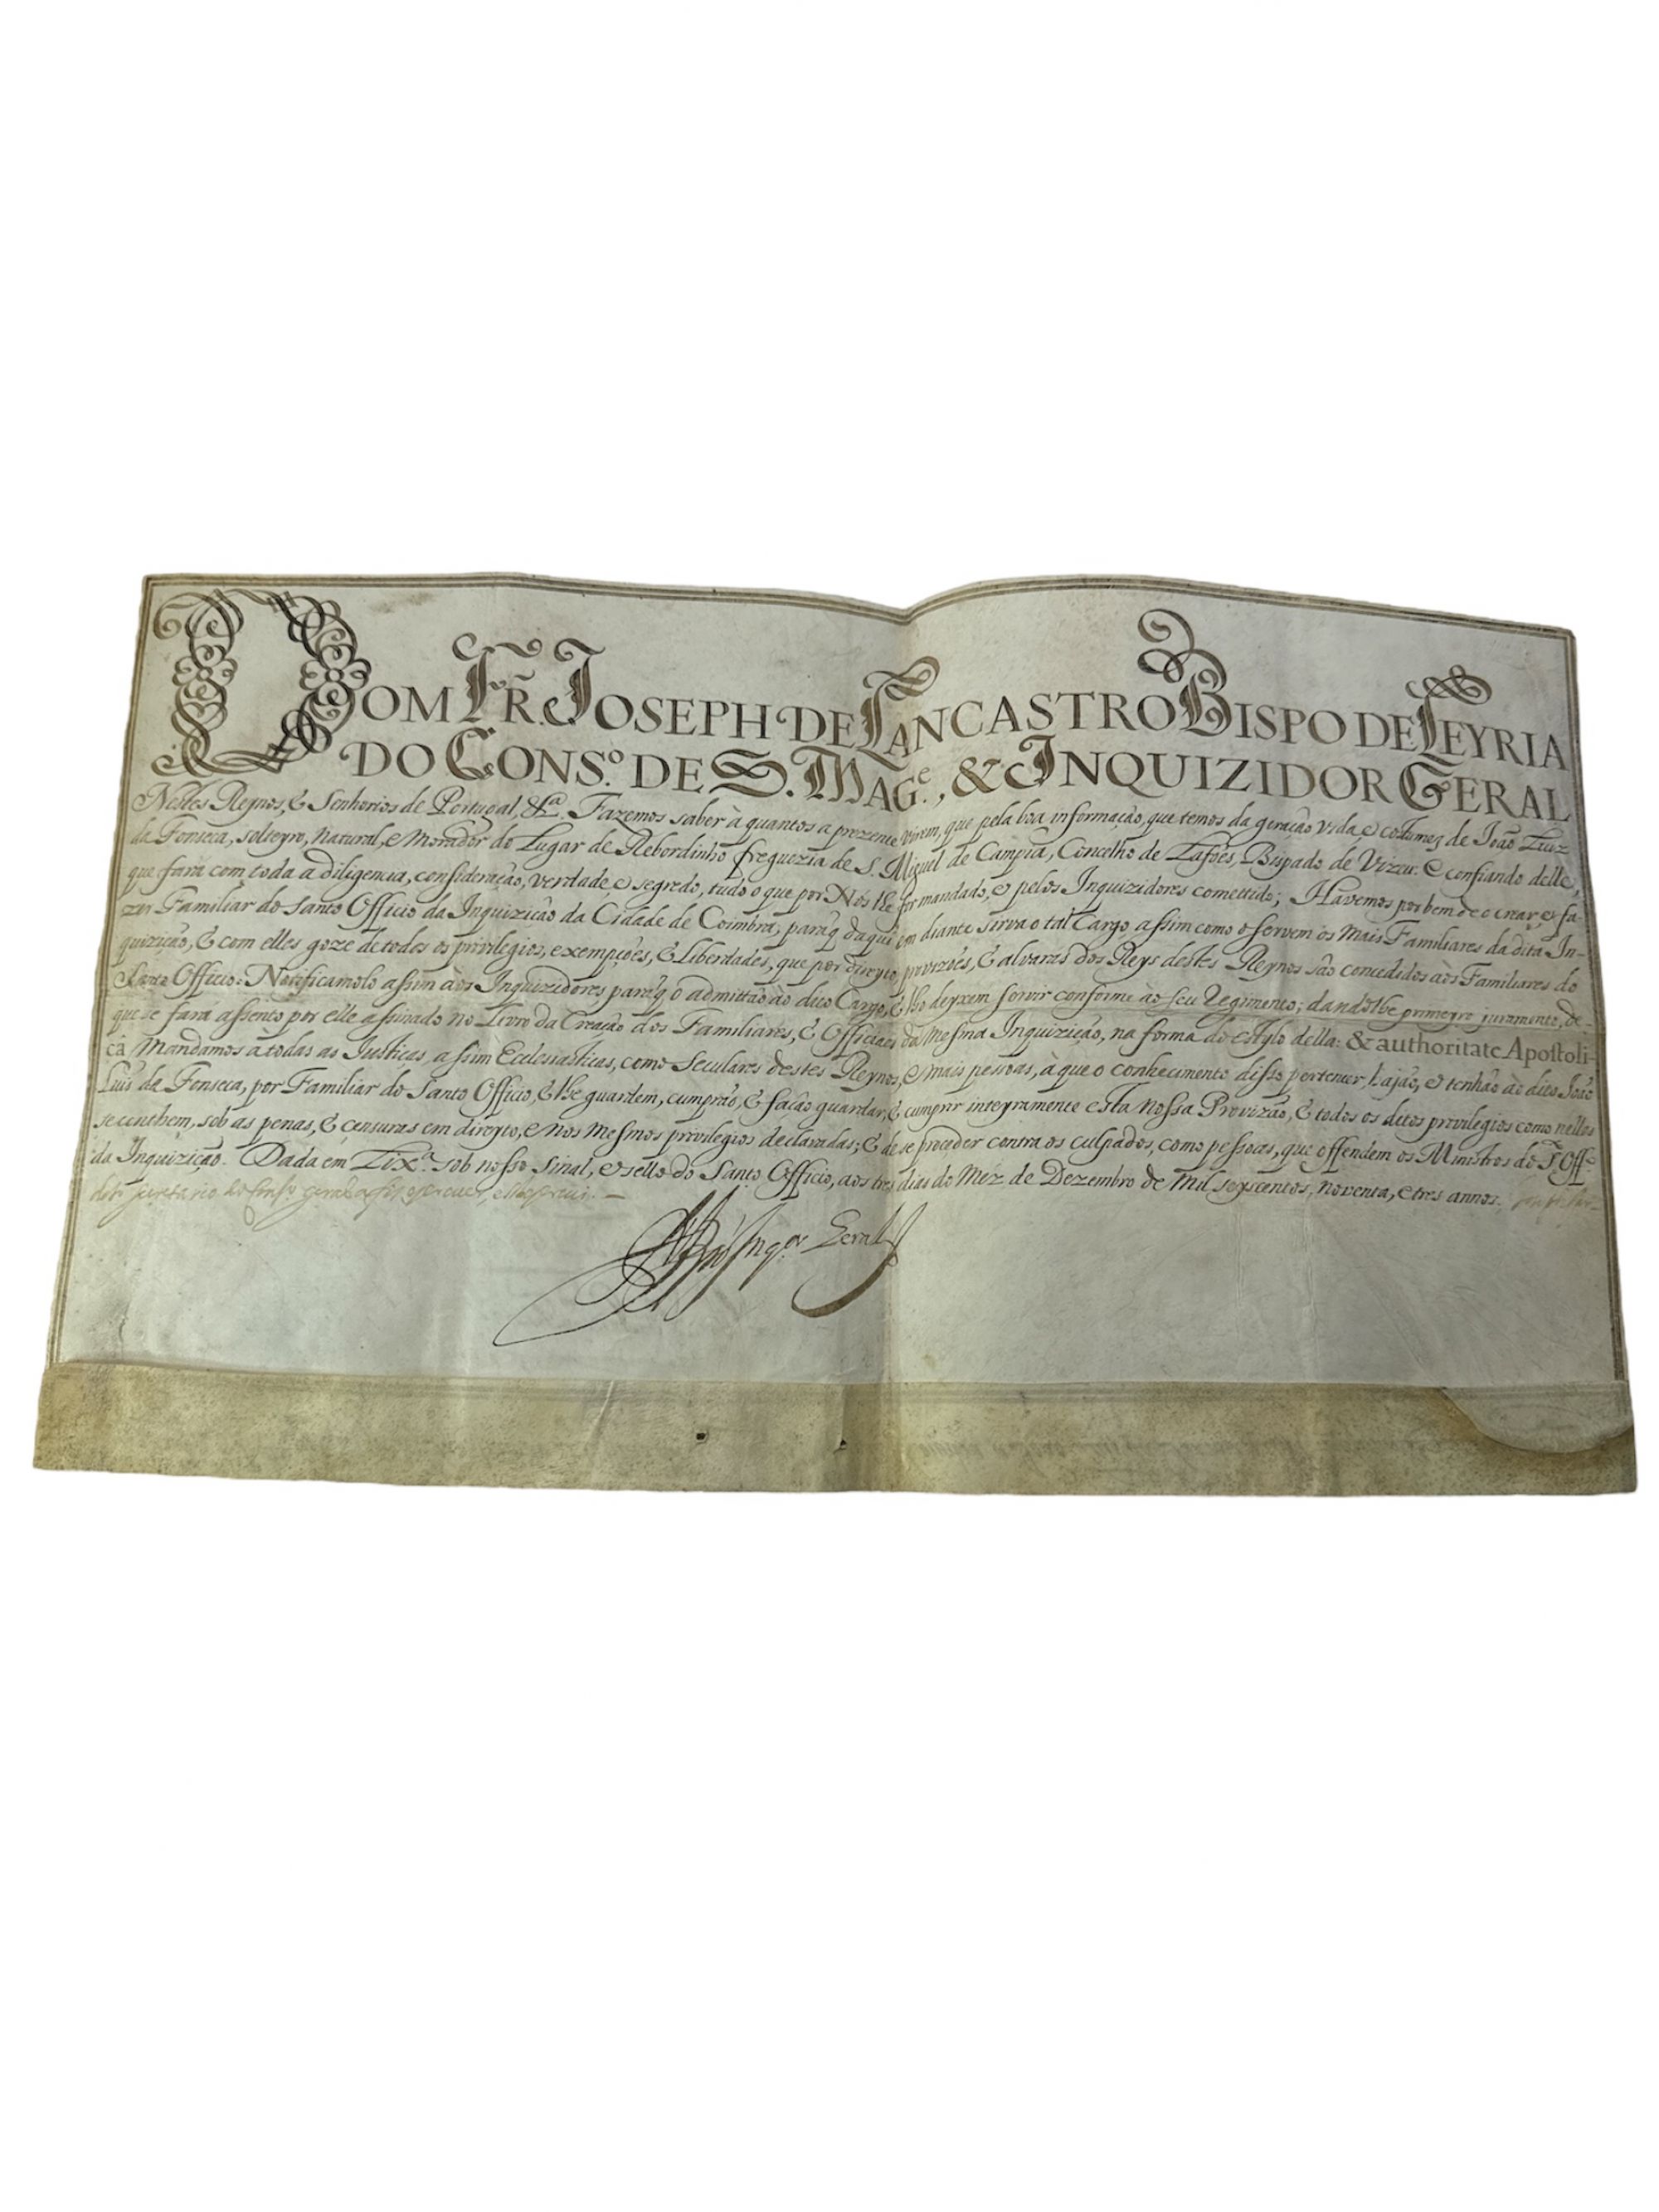 DOM FR. JOSEPH DE LANCASTRO BISPO DE LEYRIA
DO CONS.º DE S. MAG.e, & INQUIZIDOR GERAL
Nestes Reynos, & Senhorios de Portugal, &ª. Fazemos saber à quantos a prezente virem, que pela boa informação, que temos da geração vida, e costumes de João Luiz
da Fonseca, solteyro, natural, e morador do Lugar de Rebordinho freguezia de S. Miguel de Campiã, Concelho de Lafões, Bispado de Vizeu: E confiando delle,
que fará com toda a diligencia, consideração, verdade, e segredo, tudo o que por Nós lhe for mandado, e pelos Inquizidores comettido; Havemos por bem de o crear, e fa-
zer Familiar do Santo Officio da Inquizição da Cidade de Coimbra, paraq̃ daqui em diante sirva o tal Cargo, assim como o servem os mais Familiares da dita In-
quizição, & com elles goze de todos os privilegios, exempções, & Liberdades, que por direyto, provizões, & alvarás dos Reys destes Reynos são concedidos aòs Familiares do
Santo Officio: Notificamolo assim aòs Inquizidores, paraq̃ o admittão aò dito Cargo, & lho deyxem servir conforme aò seu Regimento; dandolhe primeyro juramento, de-
que se fará assento por elle assinado no Livro da Creação dos Familiares, & Officiaes da mesma Inquizição, na forma do estylo della: & authoritate Apostoli-
cá Mandamos à todas as Justiças, assim Ecclesiasticas, como Seculares destes Reynos, e mais pessoas, à que o conhecimento disso pertencer, hajão, e tenhão aò dito João
Luis da Fonseca, por Familiar do Santo Officio, & lhe guardem, cumprão, & fação guardar, & cumprir inteyramente esta nossa Provizão, & todos os ditos privilegios como nelles
se conthem, sob as penas, & censuras em direyto, e nos mesmos privilegios declaradas; & de se proceder contra os culpados, como pessoas, que offendem os Ministros do S.to Off.º
da Inquizição. Dada em Lix.ª sob nosso sinal, e sello do Santo Officio, aos tres dias do Mez de Dezembro de mil seyscentos, noventa, e tres annos.
geral
Inq.or Geral